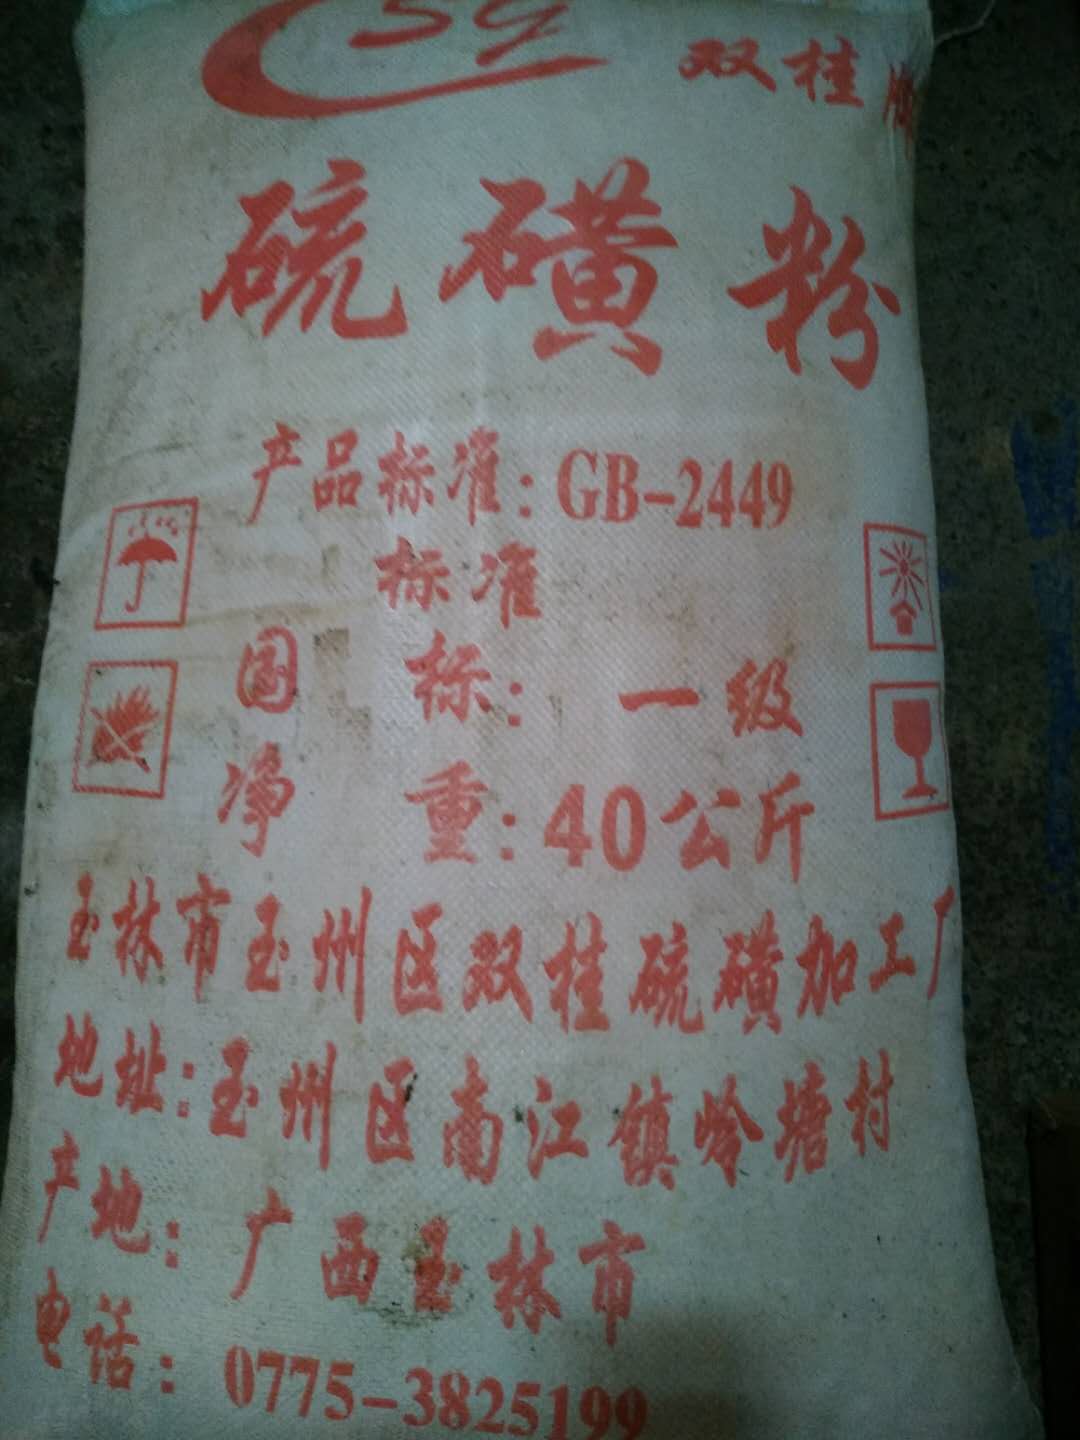 sg 双桂牌
硫磺粉
产品标准:GB-2449
标准
国标:一级
净重:40公斤
玉林市玉州区双桂硫磺加工厂
地址:玉州区南江镇岭塘村
产地:广西玉林市
电话:0775-3825199